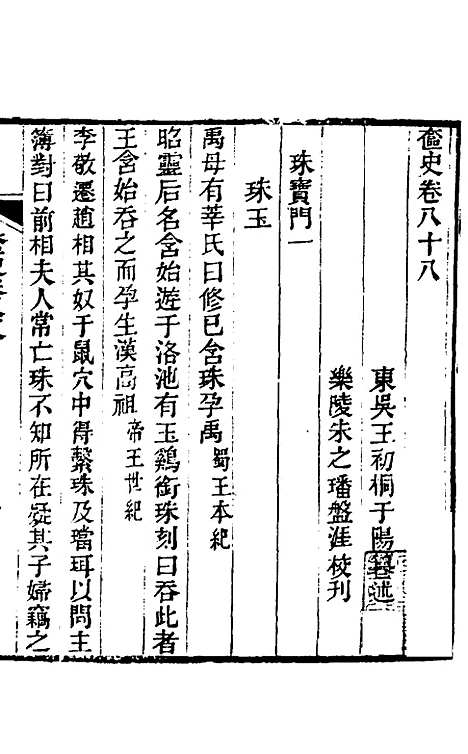 奩史卷八十八
東吳王初桐于陽纂述
樂陵朱之璠盤涯校刊
珠寶門一
珠玉
禹母有莘氏曰修已含珠孕禹蜀王本紀
昭靈后名含始遊于洛池有玉鷄銜珠刻曰吞此者
王含始吞之而孕生漢高祖帝王世紀
李敬遷趙相其奴于鼠穴中得繫珠及璫珥以問主
簿對曰前相夫人常亡珠不知所在疑其子婦竊之